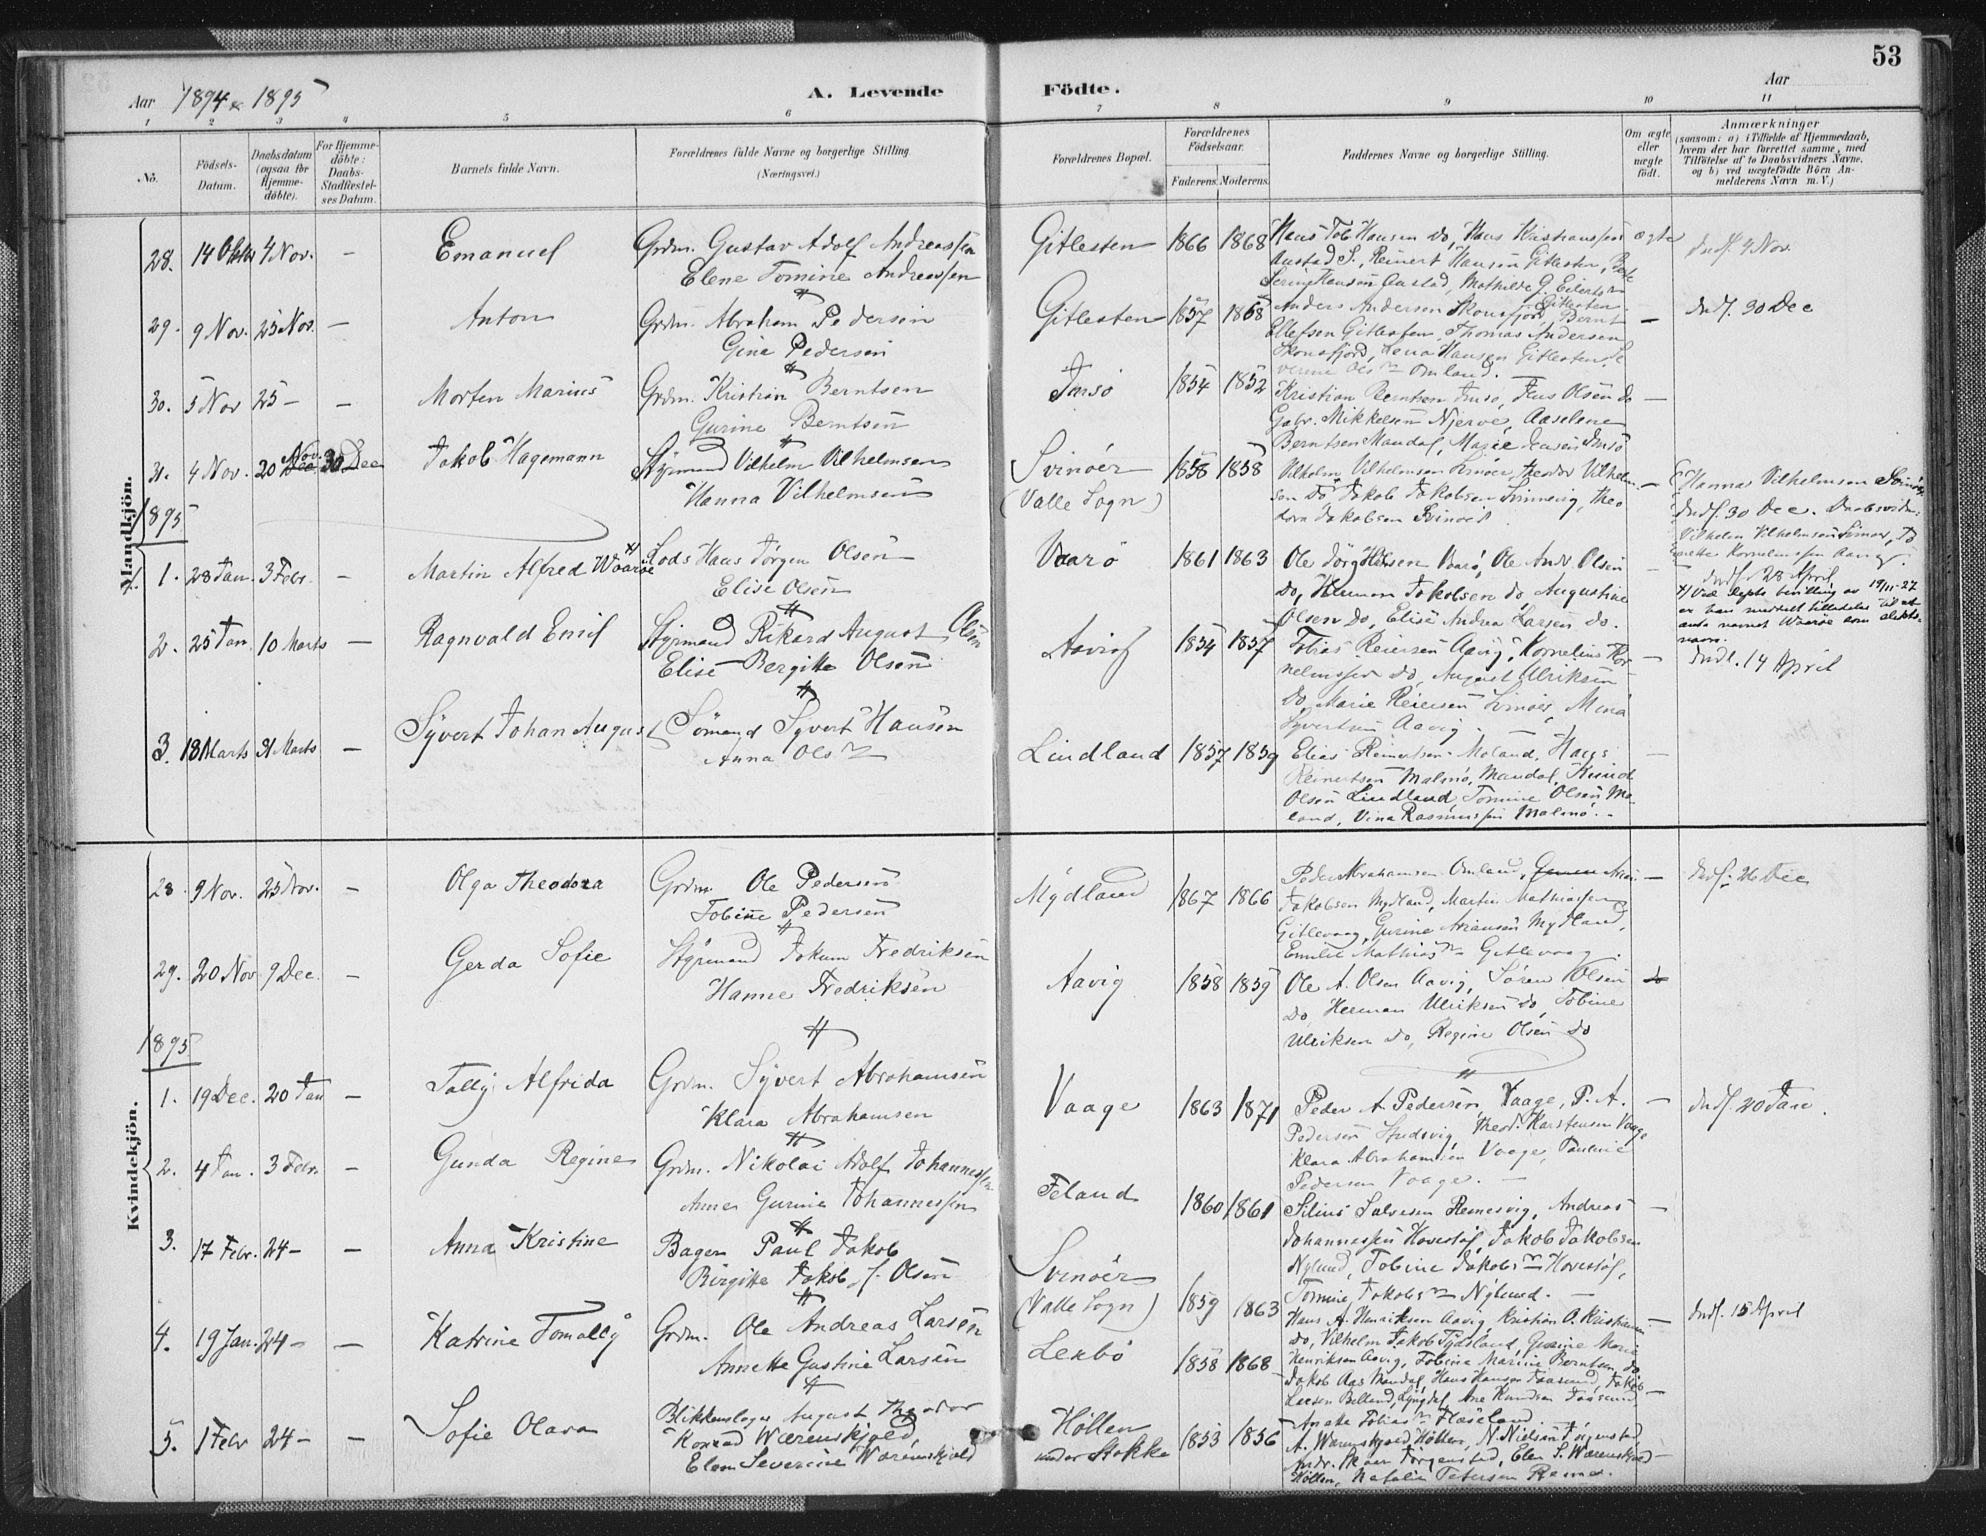 53
Aar 1894 & 1895
A. Levende Födte.
Aar
1 2 3 4 5 6 7 8 9 10 11
No.
Födsels-Datum.
Daabsdatum (ogsaa for Hjemme-döbte).
For Hjemme-döbte: Daabs-Stadfæstel-ses Datum.
Barnets fulde Navn.
Forældrenes fulde Navne og borgerlige Stilling
(Næringsvei.)
Forældrenes Bopæl.
Forældrenes Födselsaar.
Faderens. Moderens.
Faddernes Navne og borgerlige Stilling.
Om ægte eller uægte födt.
Anmærkninger
(saasom: a) i Tilfælde af Hjemmedaab, hvem der har forrettet samme, med Tilföielse af to Daabsvidners Navne, og b) ved uægtefödte Börn An-melderens Navn m. V.)
Mandkjön.
28. 14 Oktbr 4 Nov. — Emanuel Grdm. Gustav Adolf Andreassen
Elene Tomine Andreassen
Gitlesten 1866 1868 Hans Tob. Hansen do, Hans Kristianssen ægte
Austad S., Reinert Hansen Gitlesten,
indf. 9 Nov.
29. 9 Nov. 25 Nov. — Anton Grdm. Abraham Pedersen
Gine Pedersen
Gitlesten 1857 1858 Anders Andersen Skonsfjord, Bernt —
Ellefsen Gitlesten, Thomas Andersen
Skonsfjord, Lena Hansen Gitlesten,
indf. 30 Dec
30. 5 Nov 25 — — Morten Marius Grdm. Kristian Berntsen
Gurine Berntsen
Imsö 1854 1852 Kristian Berntsen Imsö, Jens Olsen do —
Gabr. Mikkelsen Njerve, Aaselene
Berntsen Mandal, Marie Jensen Imsö
31. 4 Nov. 20 Nov. 30 Dec Jakob Hagemann Styrmand Vilhelm Vilhelmsen
Hanna Vilhelmsen
Svinöer 1858 1858
(Valle Sogn)
Vilhelm Vilhelmsen Svinöer, Theodor Vilhelm-
sen do Jakob Jakobsen Svinevig, Theo
dora Jakobsen Svinöer
Hanna Vilhelmsen Svinöer
indf. 30 Dec. Daabsvidn:
Vilhelm Vilhelmsen Svinör,
1895
1. 28 Jan. 3 Febr. — Martin Alfred Waarøe Lods Hans Jörgen Olsen
Elise Olsen
Vaarö 1861 1863 Ole Jörg Hansen Vaarö, Ole Andr. Olsen —
do, Herman Jakobsen do Augustine
Olsen do, Elise Andrea Larsen do.
indf. 28 April
Ved bevilling av 19/11-27
er han meddelt tilladelse til at
anta navnet Waarøe som slekts-
navn.
2. 25 Jan. 10 Marts — Ragnvald Emil Styrmand Rikard August Olsen
Elise Bergitte Olsen
Aavig 1854 1857 Tobias Reiersen Aavig, Kornelius Kor- —
neliussen do, August Ulriksen
do, Marie Reiersen Svinöer, Mina
Syvertsen Aavig. —
indf. 14 April
3. 18 Marts 31 Marts — Syvert Johan August Sömand Syvert Hansen
Anna Olsn
Lindland 1857 1859 Elias Reinertsen Moland, Hans —
Reinertsen Malmö, Mandal, Knud
Olsen Lindland, Tomine Olsen Mo-
land, Vina Rasmussen Malmö. —
Kvindekjön.
28 9 Nov. 25 Nov. — Olga Theodora Grdm Ole Pedersen
Tobine Pedersen
Mydland 1867 1866 Peder Abrahamsen Omland, —
Jakobsen Mydland, Martin Mathiassen
Gitlevaag, Gurine Mydland,
Emilie Mathiasn Gitlevaag.
indf. 26 Dec
29. 20 Nov 9 Dec. — Gerda Sofie Styrmand Jokum Fredriksen
Hanne Fredriksen
Aavig 1858 1859 Ole A. Olsen Aavig, Sören Olsen do
do, Herman Ulriksen do, Tobine
Ulriksen do, Regine Olsen do
1895
1. 19 Dec. 20 Jan — Tally Alfrida Grdm. Syvert Abrahamsen
Klara Abrahamsen
Vaage 1863 1871 Peder A. Pedersen Vaage, P. A. —
Pedersen Studsvig, Theod. Karstensen Vaage
Klara Abrahamsen Vaage, Pauline
Pedersen Vaage. —
indf. 20 Jan.
2. 4 Jan. 3 Febr. — Gunda Regine Grdm. Nikolai Adolf Johannessen
Anne Gurine Johannessen
Feland 1860 1861 Silius Salvesen Remesvig, Andreas —
Johannessen Hovesöl, Jakob Jakobsen
Nylund, Tobine Jakobsn Hovesöl,
Tomine Jakobsn Nylund. —
3. 17 Febr. 24 — — Anna Kristine Bager Paul Jakob
Birgitte Jakob f. Olsen
Svinöer
(Valle Sogn) 1859 1863
Hans A. Henriksen Aavig Kristian O. Kristiansen —
do, Vilhelm Jakob Tjösland, Gurine Marie
Henriksen Aavig, Tobine Marine Berntsen do
indf. 15 April
4. 19 Jan. 24 — — Katrine Tomally Grdm. Ole Andreas Larsen
Annette Gustine Larsen
Lenbö 1858 1868
Jakob Aas Mandal, Hans Hansen Faasund, Jakob —
Larsen Belland, Lyngdal, Ane Knudsen Faasund
Agathe Tobiasn Flaseland
5. 1 Febr 24 — — Sofie Olava Blikkenslager August Theodor
Konrad Wærenskjold
Elen Severine Wærenskjold
Höllen
under Stokke 1853 1856
A. Wærenskjold Höllen, N. Nielsen Jörgenstad
Andr. Skaar Jörgenstad, Elen S. Wærenskjold —
Höllen, Natalia Petersen Reme.